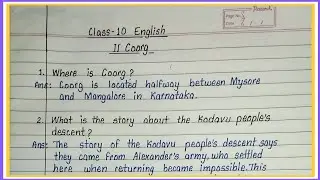 Page No.
Date
Class-10 English
II Coorg
1. Where is Coorg?
Ans: Coorg is located halfway between Mysore
and Mangalore in Karnataka.
2. What is the story about the Kodavu people's
descent?
Ans: The story of the Kodavu people's descent says
they came from Alexander's army, who settled
here when returning became impossible. This